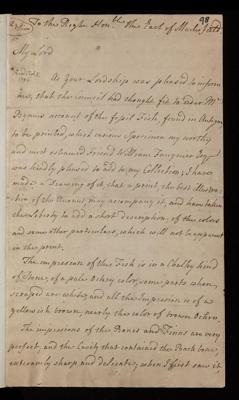 98
To the Right Hon.ble the Earl of Macclesfield
My Lord
As your Lordship was pleased to inform
me, that the Council had thought fit to order Mr
account of the fossil Fish, found in
to be printed, which curious Specimen my worthy
and most esteemed Friend William Esqr
was kindly pleased to add to my Collection; I have
made a Drawing of it, that a print, the best Illustra-
tion of the Account, may accompany it, and have taken
the Liberty to add a short description, of the colors
and some other particulars, which will not be apparent
in the print.
The impression of this Fish is in a Chalky kind
of Stone, of a pale Ochrey color, some parts when
scraped are white, and all the Impression is of a
yellowish brown, nearly the color of brown Ochre.
The impressions of the Bones and Finns are very
perfect, and the Cavity that contained the Back bone,
extreamly sharp and delicate; when I first saw it